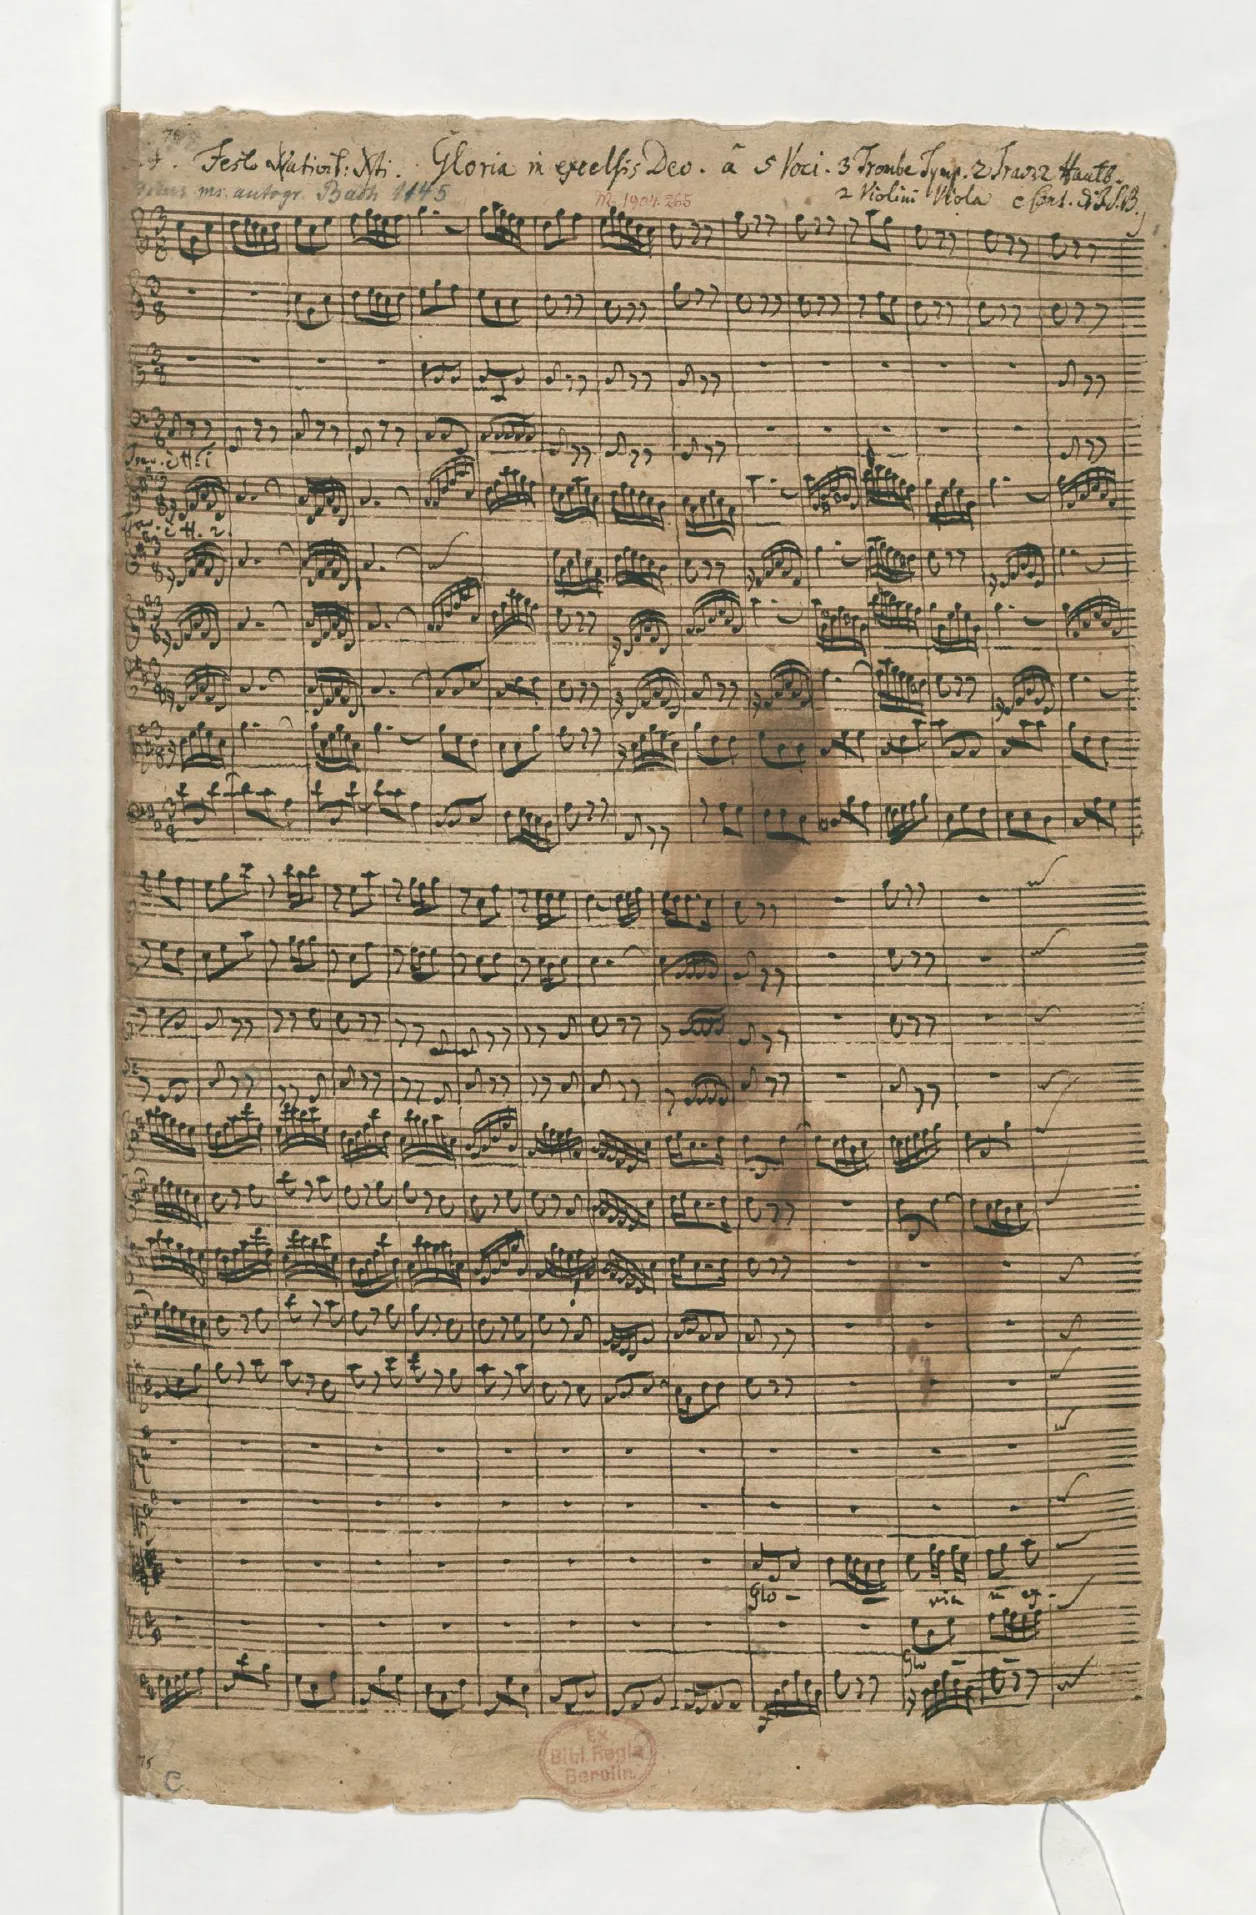 J. J. Festo Nativit: Xti. Gloria in excelsis Deo. â 5 Voci. 3 Trombe Tymp. 2 Trav 2 Hautb.
2 Violini Viola e Cont. di J.S.B.
mus. ms. autogr. Bach P 145
M. 1904. 265
Trav. è H. 1
è H. 2.
Glo -
ria in ex -
Glo - -
Ex
Bibl. Regia
Berolin.